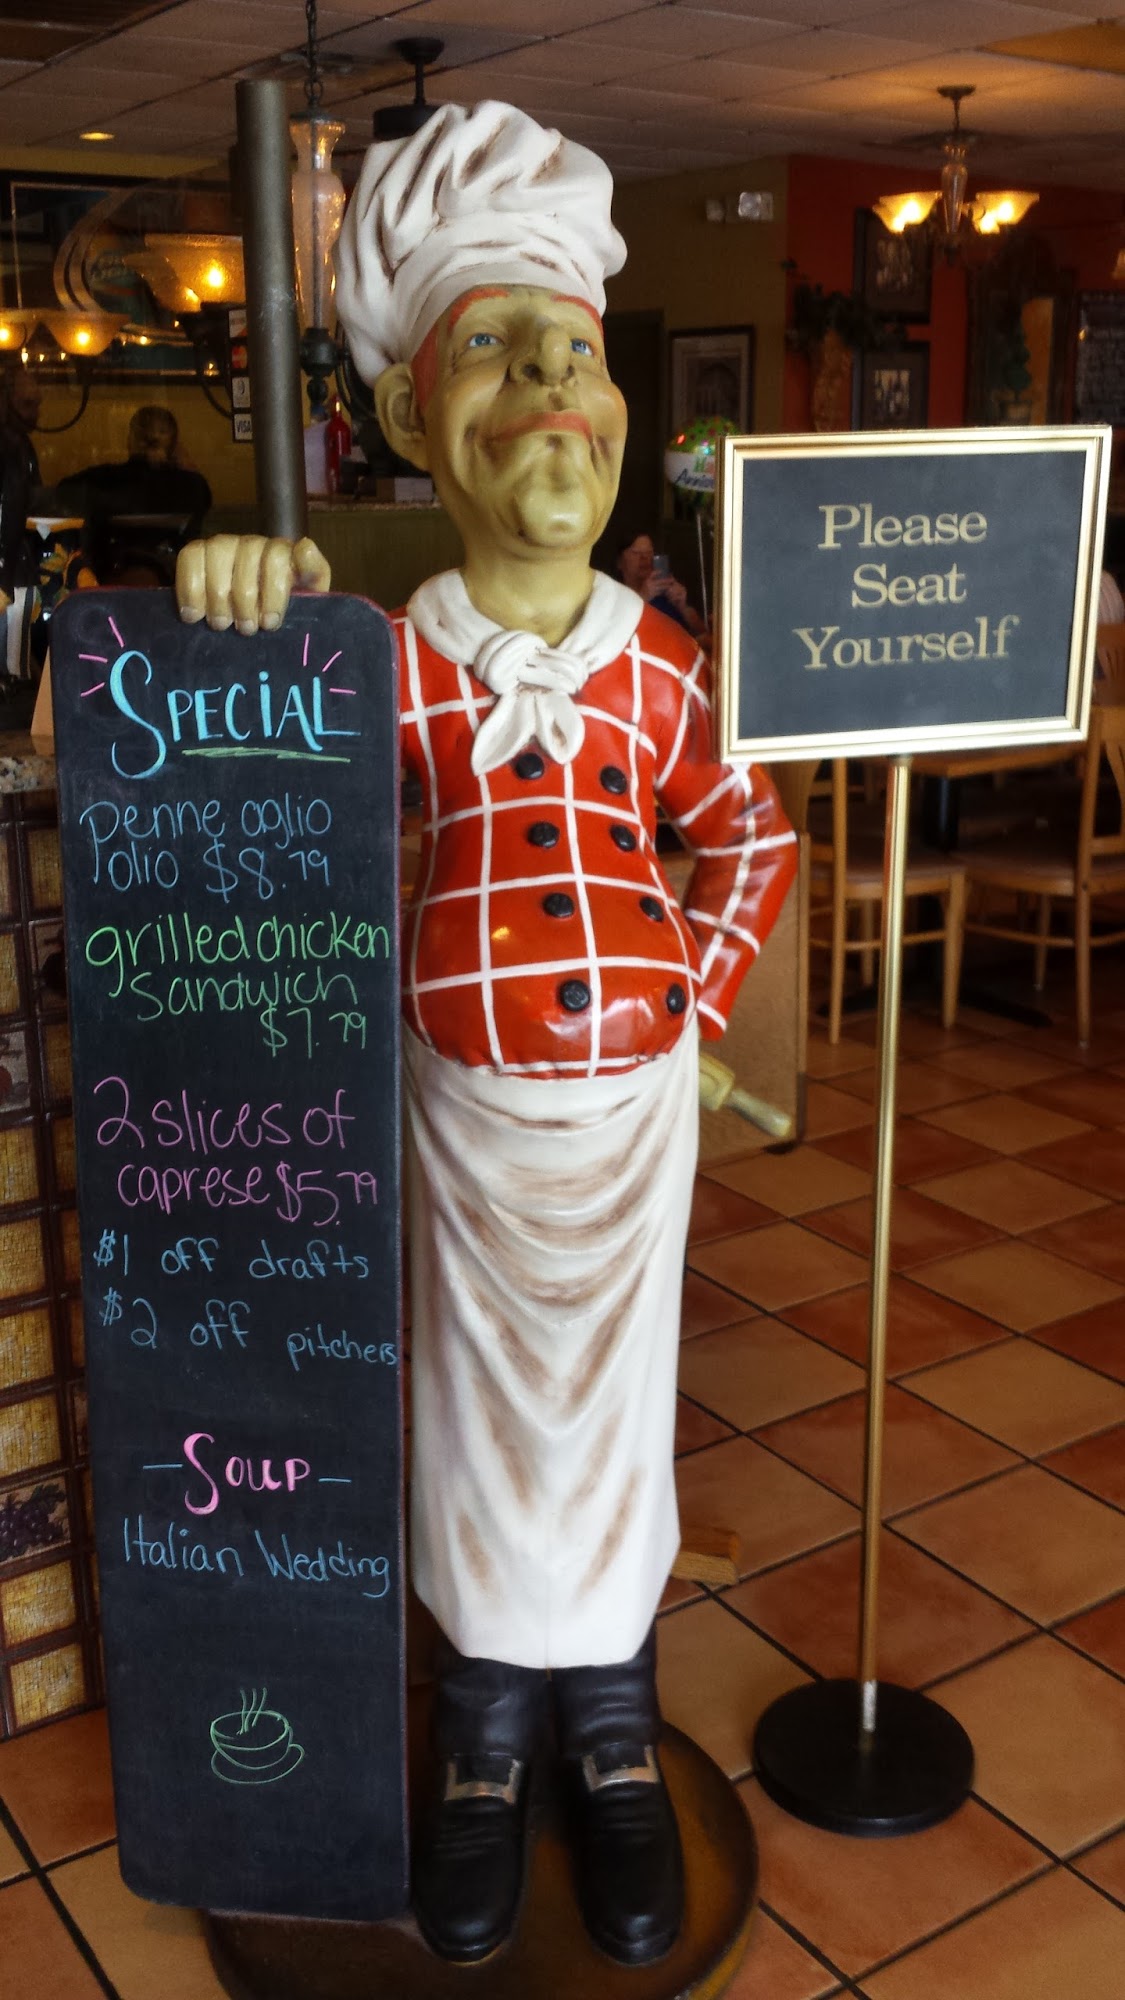 SPECiAL
penne aglio
olio $8.79
grilled chicken
sandwich
$7.79
2 slices of
caprese $5.79
$1 off drafts
$2 off pitchers
-Soup-
Italian Wedding
Please
Seat
Yourself
VISA